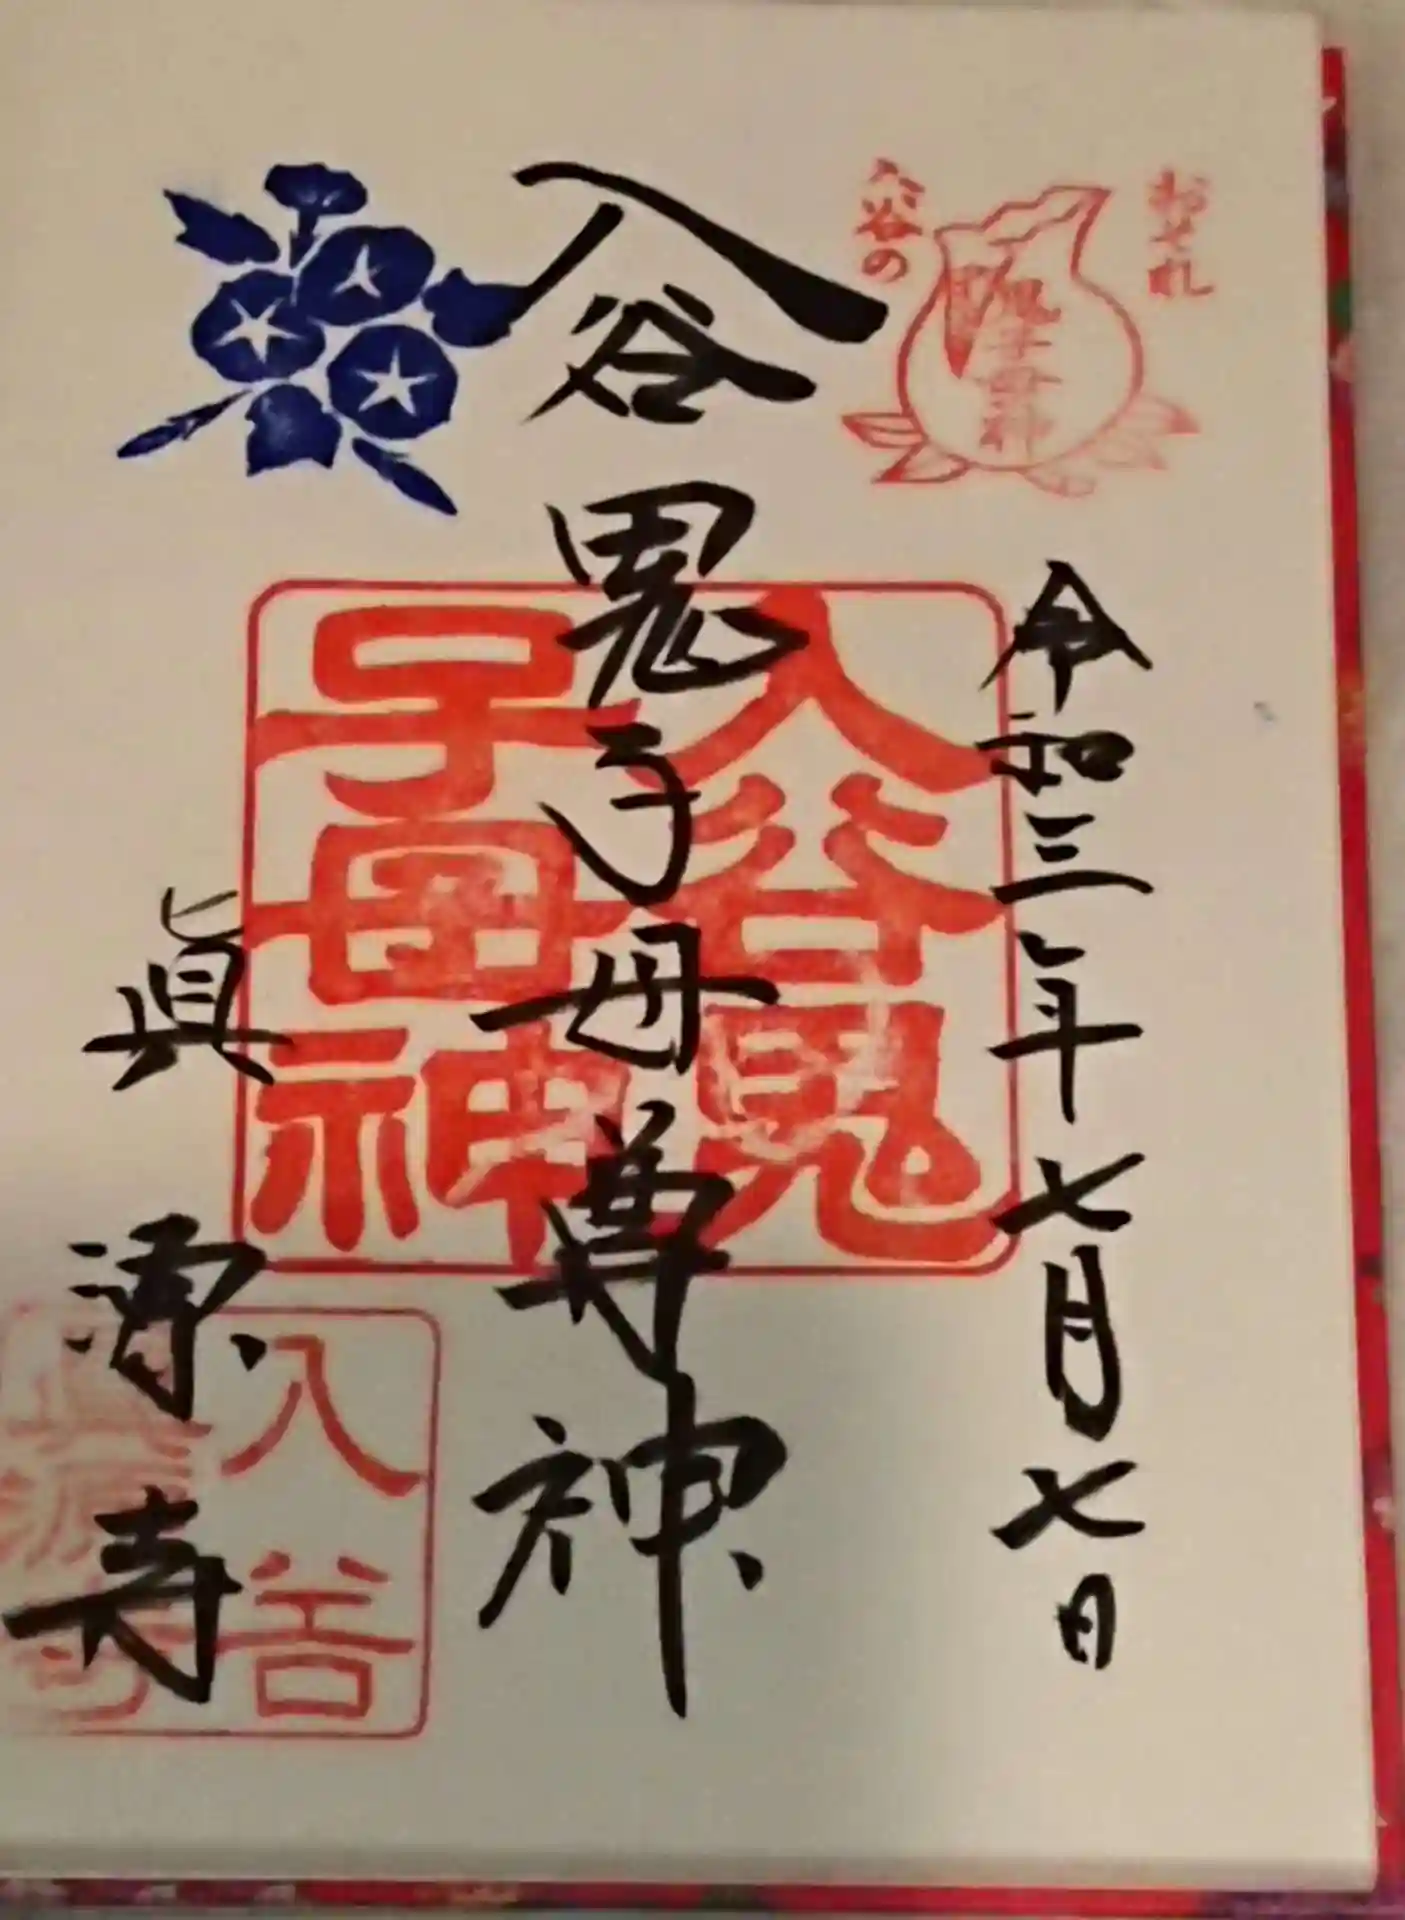 おそれ
入谷の
鬼子母神
令和三年七月七日
入谷鬼子母尊神
入谷鬼
子母神
眞源寺
入谷
眞源寺